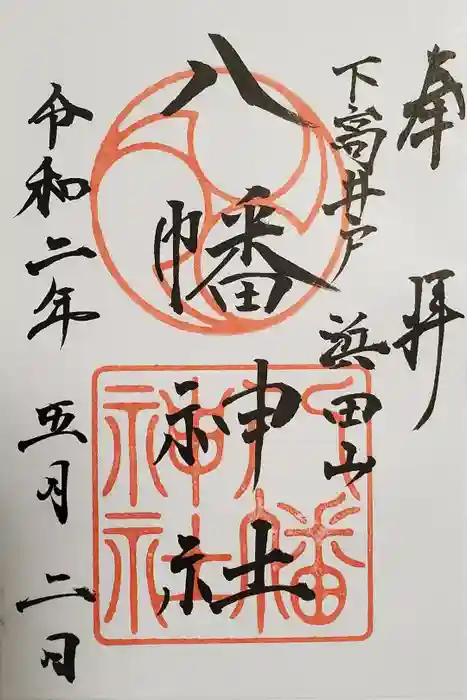 奉拝
下高井戸 浜田山
八幡神社
令和二年 五月 二日
八幡神社